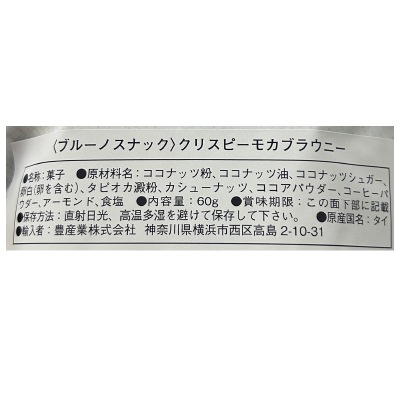 〈ブルーノスナック〉クリスピーモカブラウニー
●名称：菓子 ●原材料名：ココナッツ粉、ココナッツ油、ココナッツシュガー、
卵白(卵を含む)、タピオカ澱粉、カシューナッツ、ココアパウダー、コーヒーパ
ウダー、アーモンド、食塩 ●内容量：60g ●賞味期限：この面下部に記載
●保存方法：直射日光、高温多湿を避けて保存して下さい。 ●原産国名：タイ
●輸入者：豊産業株式会社 神奈川県横浜市西区高島2-10-31